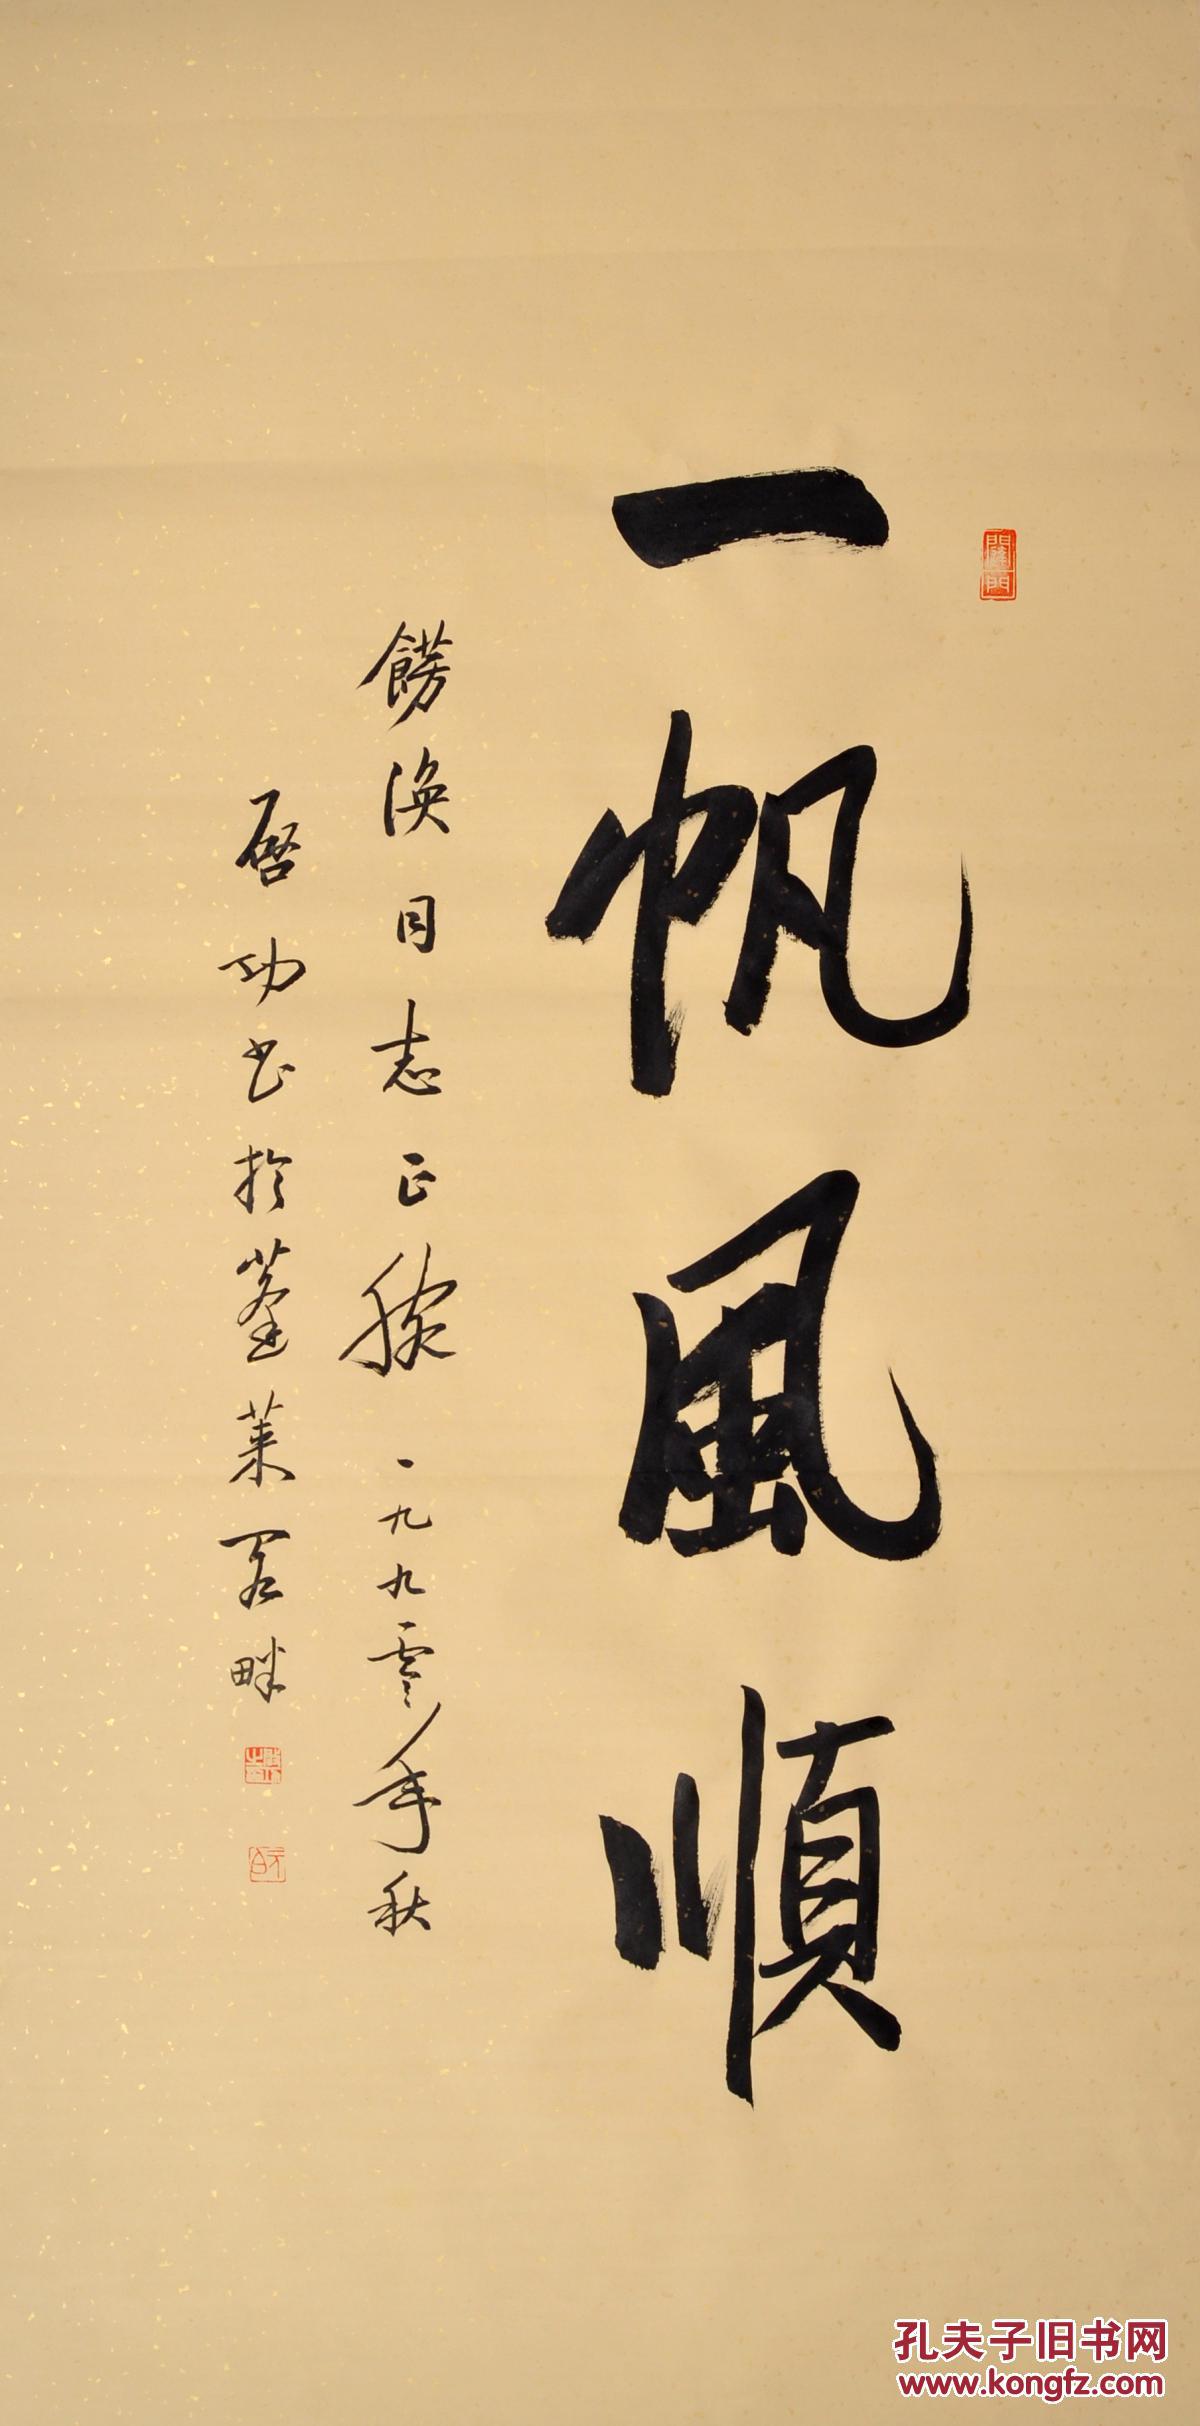 一帆風順
涣同志正腕一九九零年秋
启功书於蓬莱阁畔
孔夫子旧书网
www.kongfz.com